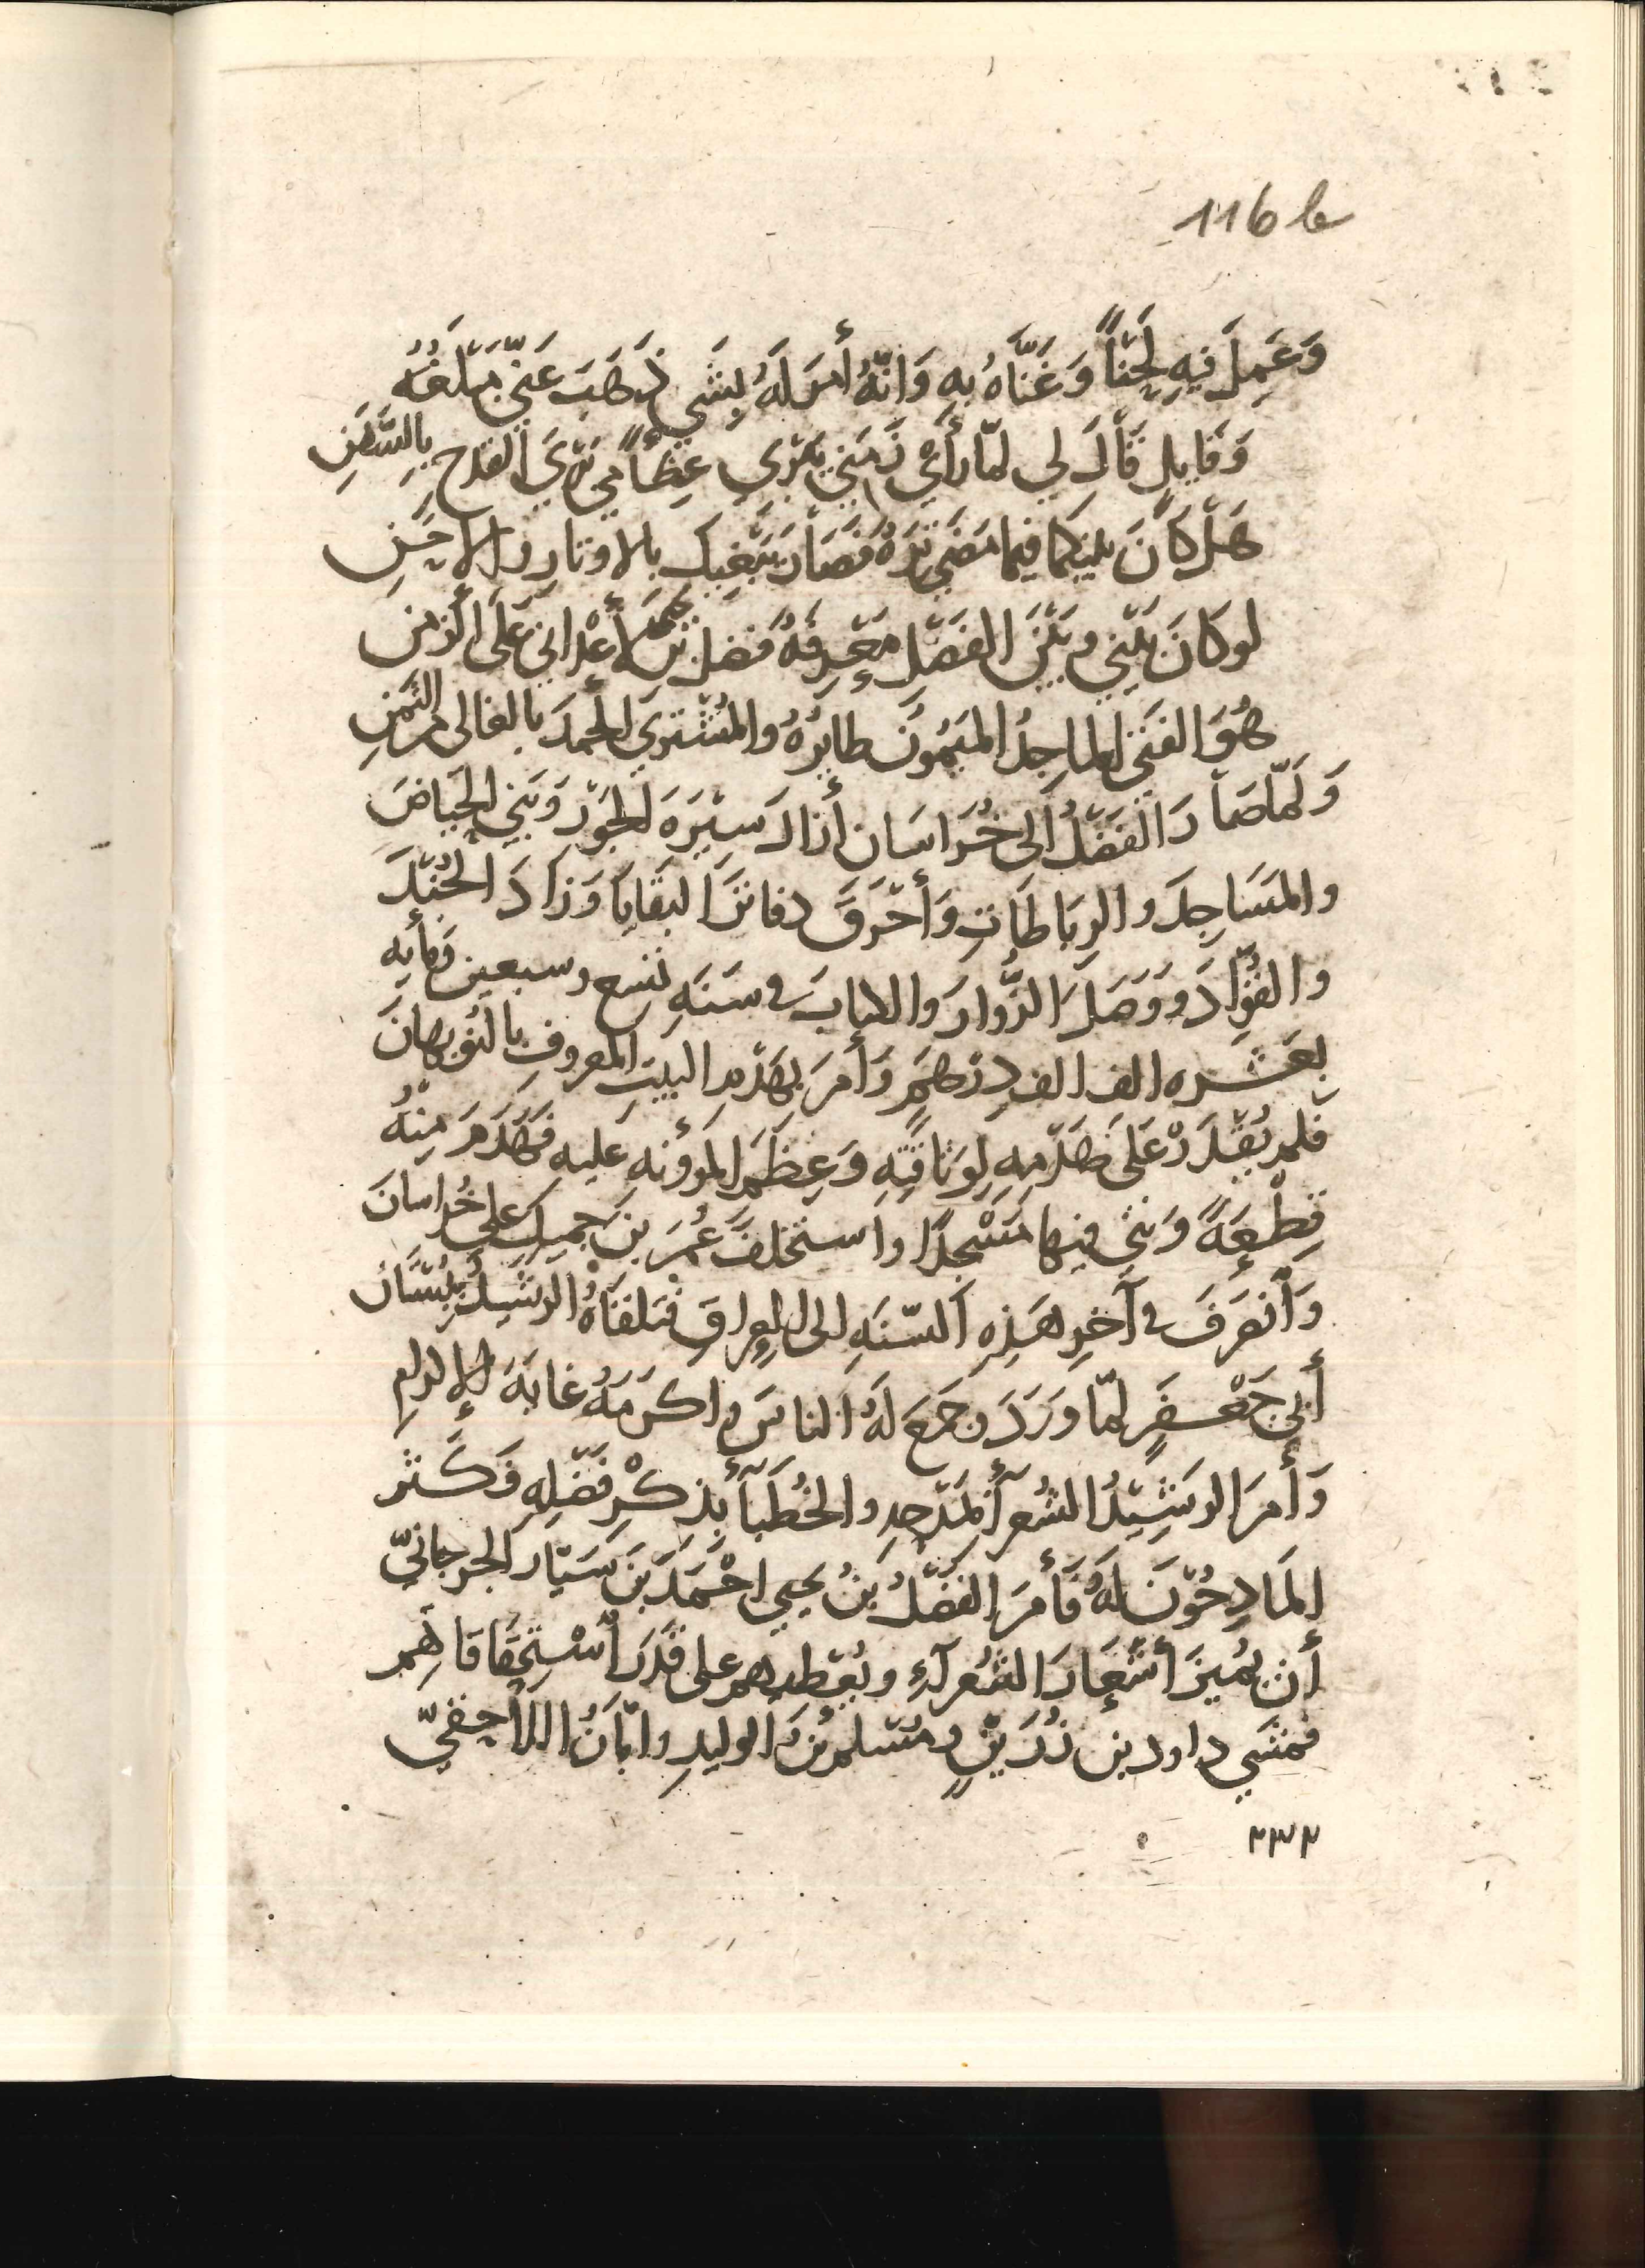 116 b
وَعَمِلَ فيهِ لَحْناً وَغَنَّاهُ بهِ وَانّهُ أمَر لَهُ بِشَي ذَهَبَ عَنّي مَبْلَغُهُ
وَقَايِلٍ قَالَ لي لمّا رَأَيْ زَمَني يَبْري عِظَاَمي بَرْيَ القدحِ بِالسَّفَنِ
هَلْ كَانَ بينكما فيما مَضَي تِرَةٌ فَصَارَ يَبْغِيكَ بالاوتارِ والاحَنِ
لو كانَ بَيْني وبَيْنَ الفَضْلِ مَعْرِفَةٌ فضل بن يحيى لأعْداني عَلَى الزمنِ
هُوَ الفَتَى الماجِدُ المَيْمُونُ طايرُهُ والمُشْتري الحَمدَ بالغالى من الثَمَنِ
وَلمّا صَاَرَ الفَضْلُ الى خُرَاسَان أزالَ سِيْرَةَ الجَوْرِ وَبَني الحِيَاضَ
والمَسَاجِدَ والرِبَاطَاتِ وَأحْرَقَ دفاترَ البَقَايَا وَزَادَ الجُنْدَ
والقُوَّادَ ووَصَلَ الزُّوارَ والكتابَ في سَنَهِ تسع وسبعين ومأيه
بعَشره الف الف دِرْهَمٍ وَأمَرَ بهَدْمِ البيتِ المعروفِ بالنُوبهارَ
فلم يُقْدَرْ عَلَى هَدْمِهِ لِوَثاقَتِهِ وَعِظَمِ المؤونهِ عليه فَهَدَمَ مِنْهُ
قِطْعَةً وَبَنَي فيها مَسْجدًا واستخلفَ عُمَرَ بنَ جميلٍ على خُراسانَ
وَأنْصَرَفَ في آخرِ هَذِهِ السّنَهِ الى العراقِ فتلقَاهُ الرشيدُ ببُسْتَانِ
أبي جَعْفَرٍ لمّا وَرَدَ وجَمَعَ لَهُ الناسَ واكرَمَهُ غايَةَ الإكرامِ
وَأمَرَ الرَشِيْدُ الشُعرآءَ بمَدْحِهِ والخُطَبآءَ بِذِكْرِ فَضْلِهِ فَكَثر
المَادِحُوْنَ لَهُ فَأمَرَ الفَضْلُ بنُ يحيي احْمَدَ بنَ سَيّار الجرجانيّ
أن يُميزَ أشْعَارَ الشُعَرآءِ ويُعْطيهم على قَدَرِ أسْتِحْقَاقِهِم
فمشَي داود بن رُزَيْنٍ ومُسْلم بنُ الوليدِ وابَانُ اللاحِقيّ
٢٣٢